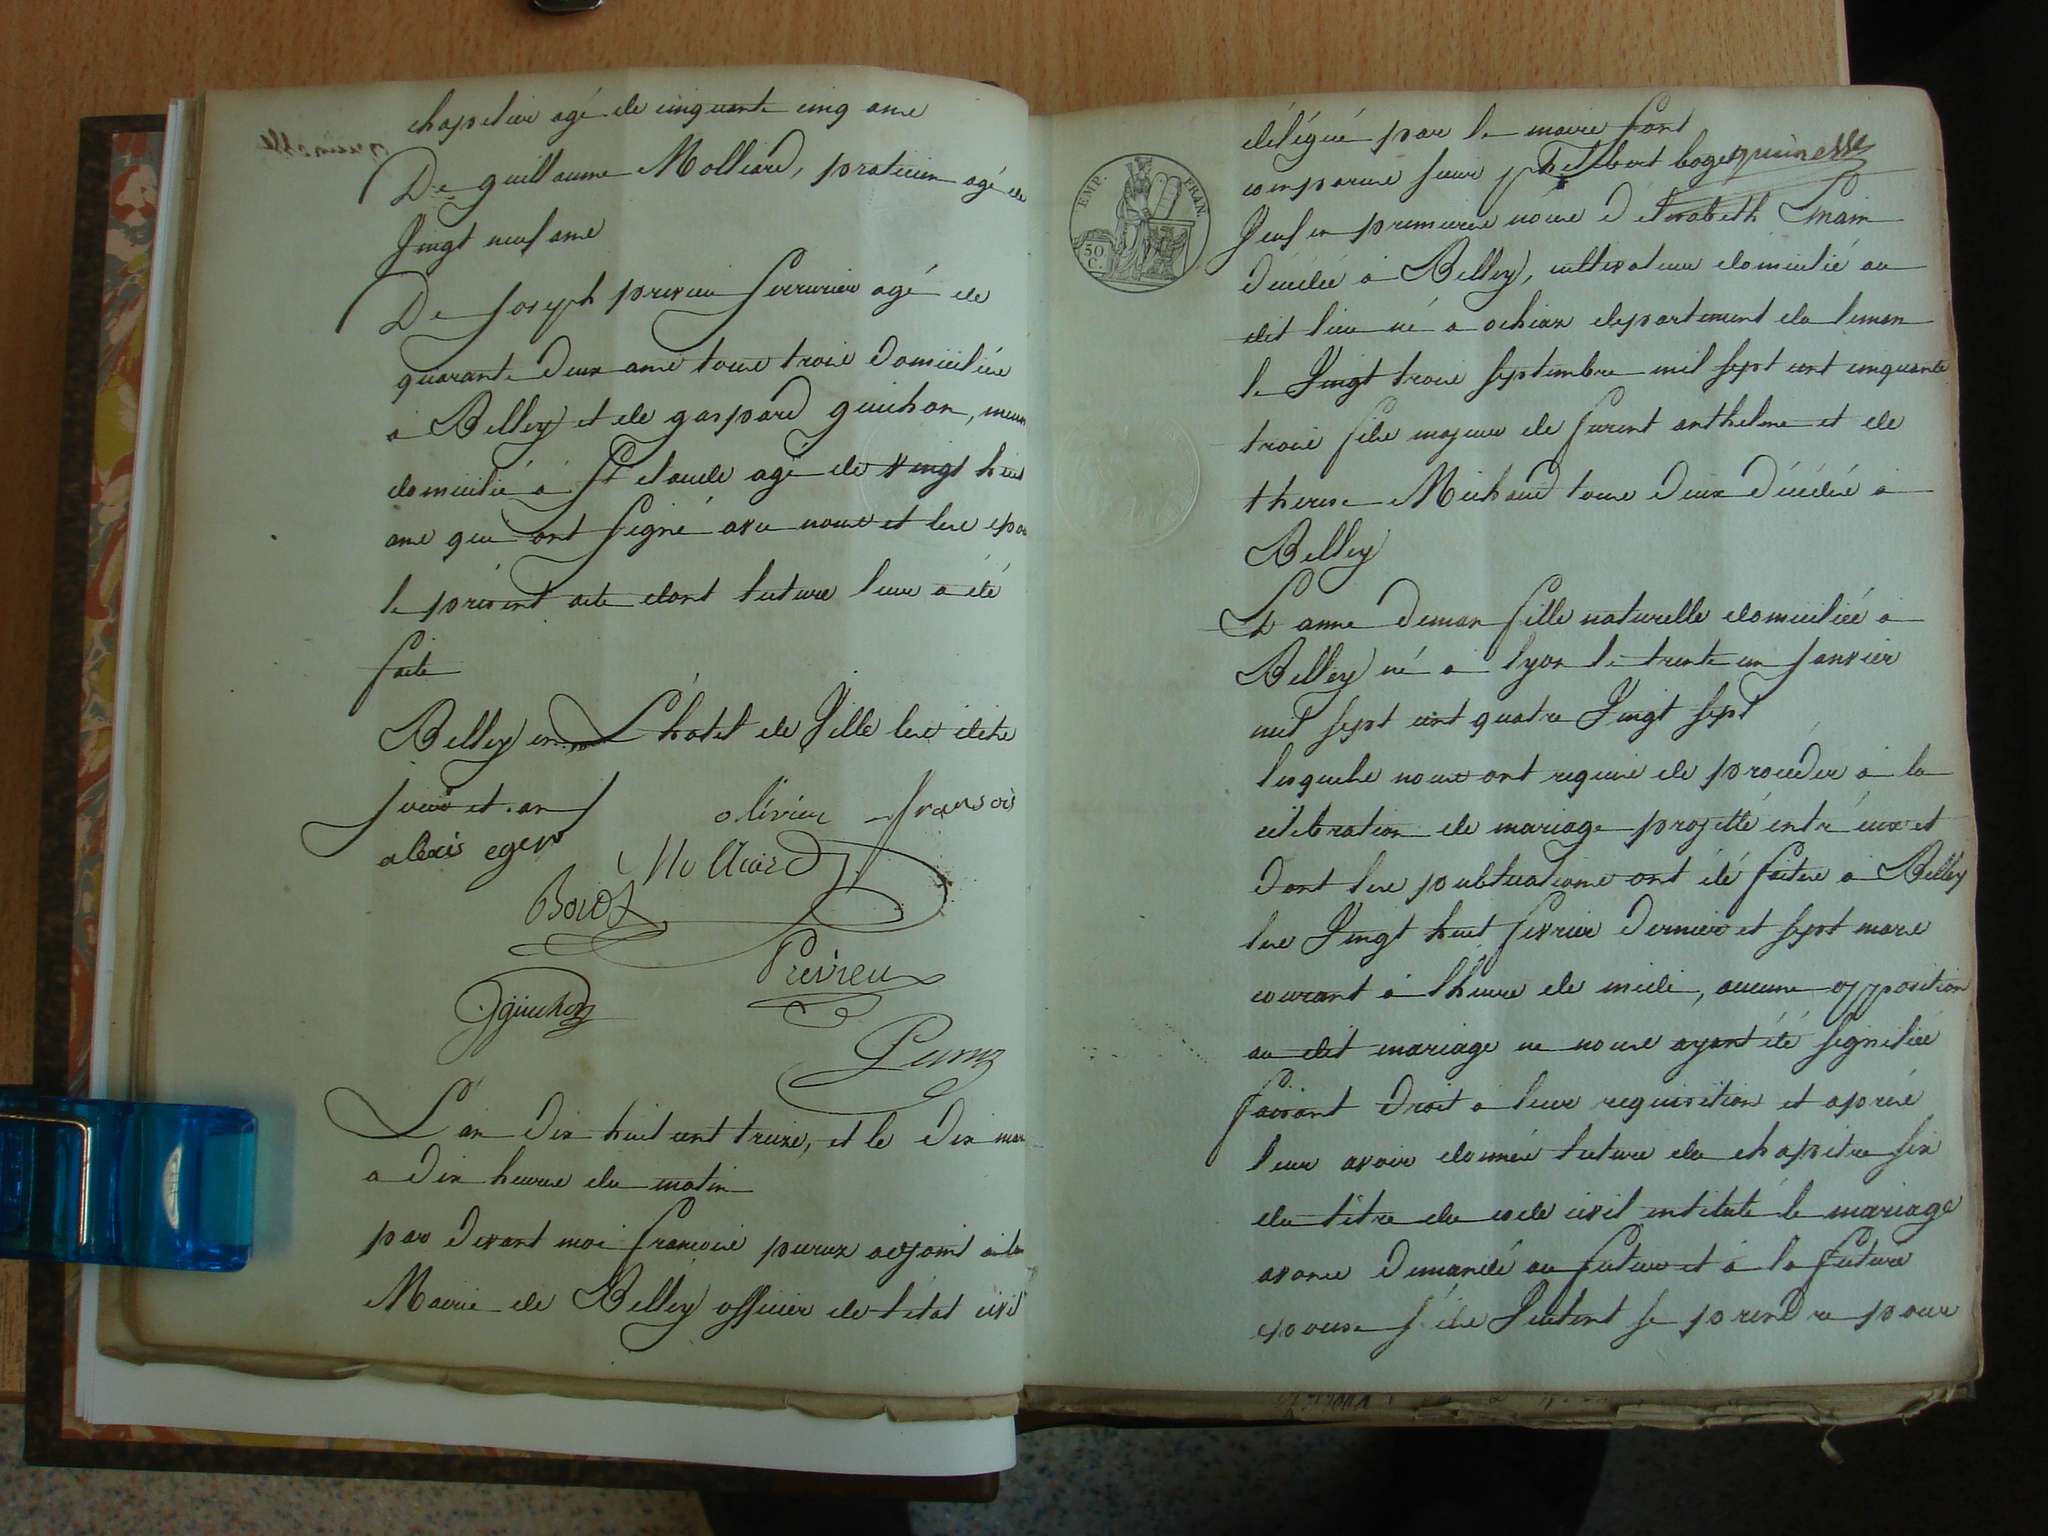 chapelier agé de cinquante cinq ans
De guillaume Molliard, praticien agé de
Vingt neuf ans
De Joseph previeu Serrurier agé de
quarante Deux ans tous trois Domiciliés
a Belley et de gaspard guichon,
domicilié a St Claude agé de vingt huit
ans qui ont Signé avec nous et les
le présent acte dont lecture leur a été
faite
Belley en L'hotel de Ville les dits
Jour et an
olivier francois
alexis eger
Molliard
Borot
Previeu
Gguichon
L'an Dix huit cent treize, et le Dix mars
a Dix heures du matin
par Devant moi francois peruz adjoint a la
Mairie de Belley officier de l'état civil
délégué par le maire sont
comparus sieur philibert boge quinesse
Veuf en premieres noces d'elisabeth
Décédée à Belley, cultivateur domicilié au
dit lieu né a ochiaz departement du leman
le Vingt trois septembre mil sept cent cinquante
trois fils majeur de furent anthelme et de
therese Michaud tous deux Décédés a
Belley
Et anne Duman fille naturelle domiciliée a
Belley né a lyon le trente un Janvier
mil sept cent quatre Vingt Sept
lesquels nous ont requis de procéder a la
célébration de mariage projetté entr'eux et
Dont les publications ont été faites a Belley
les Vingt huit fevrier Dernier et sept mars
courant a l'heure de midi, aucune opposition
au dit mariage ne nous ayant été signifiée
faisant Droit a leur requisition et après
leur avoir donnée lecture du chapitre six
du titre du code civil intitulé le mariage
avons Demandé au futur et à la future
epouse s'ils Veulent se prendre pour
EMP. FRAN.
50 C.